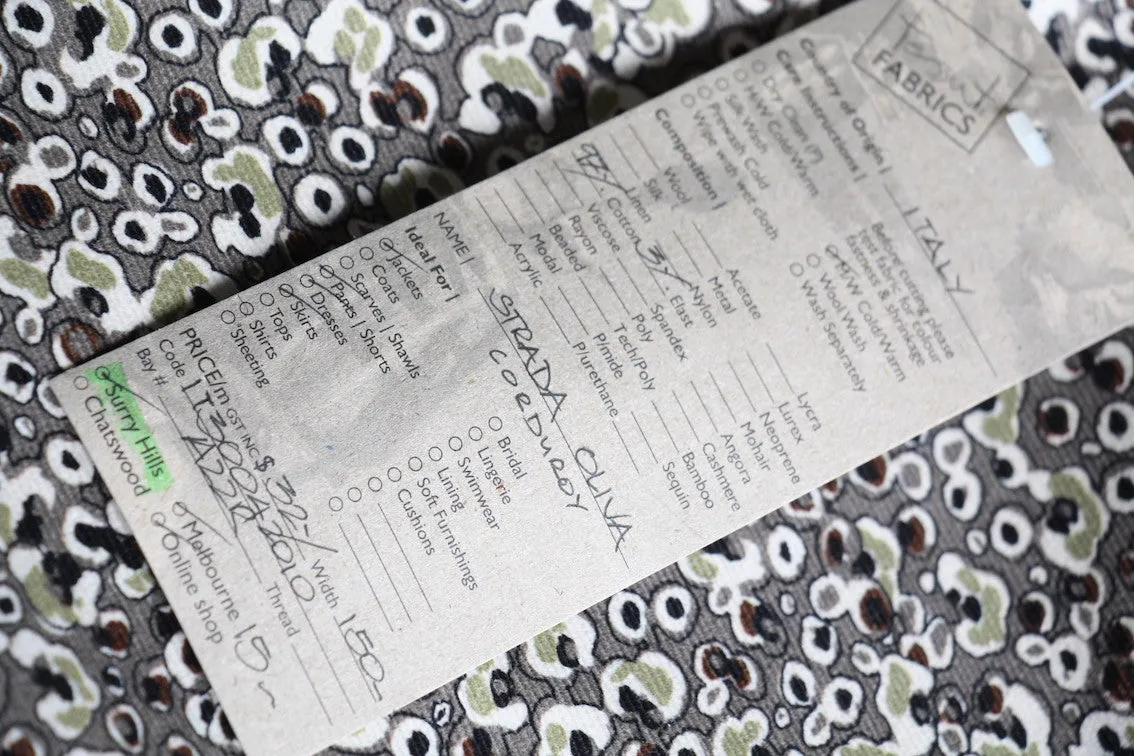 Tessuti
FABRICS
Country of Origin | ITALY
Care Instructions |
Dry Clean (?)
H/W Cold/Warm
Silk Wash
Prewash Cold
Wipe wash wet cloth
Before cutting please
test fabric for colour
fastness & shrinkage
H/W Cold/Warm
Wool Wash
Wash Separately
Composition |
Wool
Silk
Linen
97% Cotton
Viscose
Rayon
Beaded
Modal
Acrylic
Acetate
Metal
Nylon
3% Elast
Spandex
Poly
Tech/Poly
P/mide
P/urethane
Lycra
Lurex
Neoprene
Mohair
Angora
Cashmere
Bamboo
Sequin
NAME | STRADA OLIVA
CORDUROY
Ideal For |
Jackets
Coats
Scarves | Shawls
Pants | Shorts
Dresses
Skirts
Tops
Shirts
Sheeting
Bridal
Lingerie
Swimwear
Lining
Soft Furnishings
Cushions
PRICE/m GST INC $ 32/ Width 150
Code
Bay # Thread
Surry Hills
Chatswood
Melbourne 15
Online shop